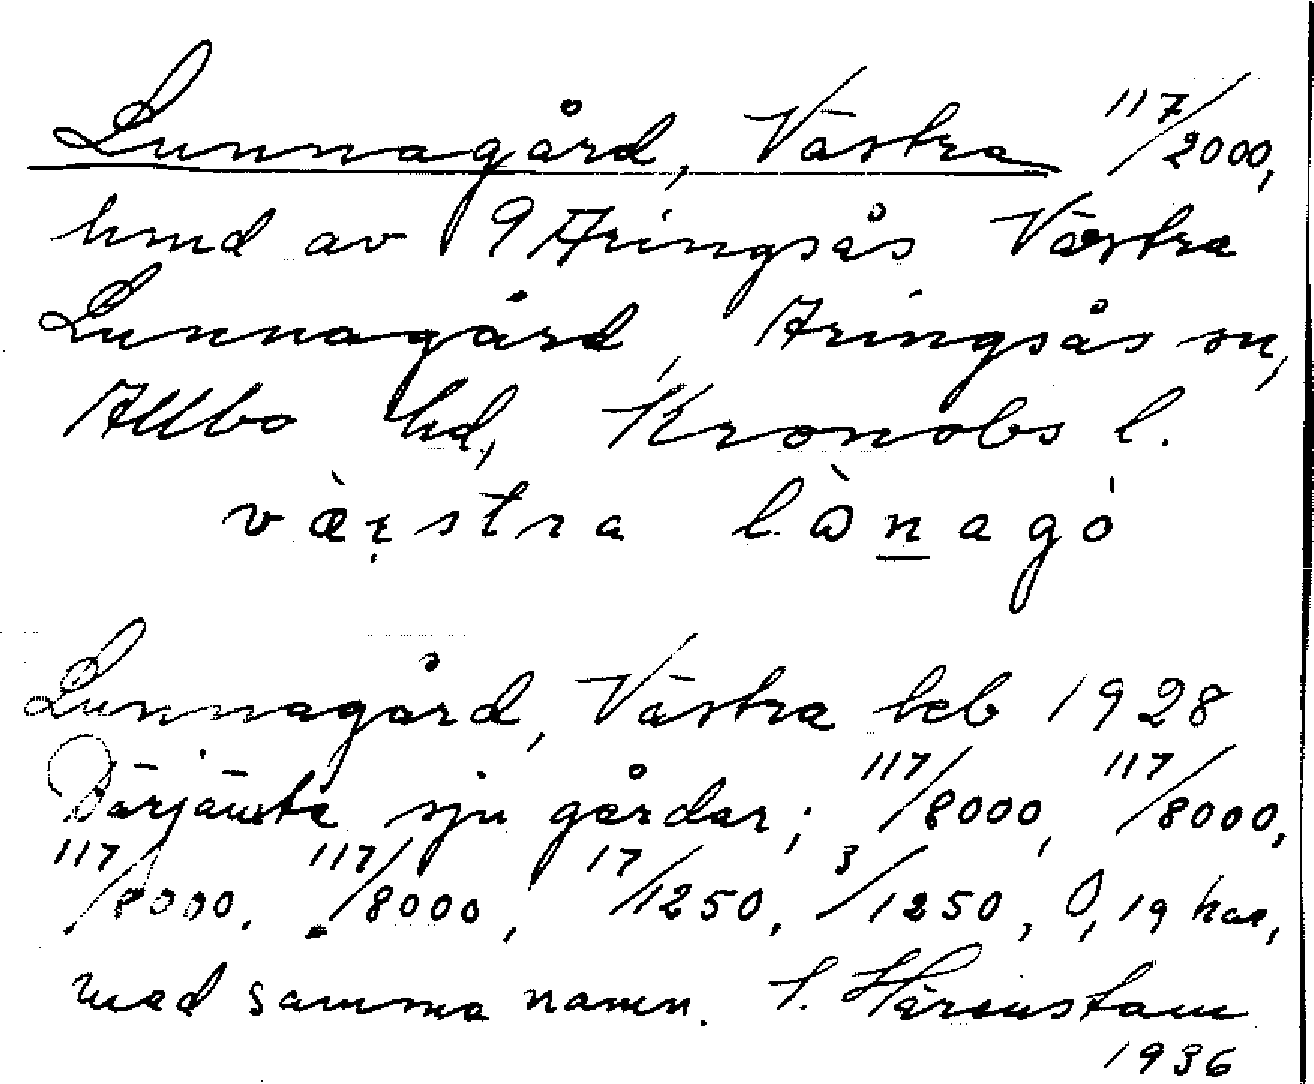 Lunnagård, Västra 117/2000,
hmd av 9 Aringsås Västra
Lunnagård, Aringsås sn,
Allbo hd, Kronobs l.
væ̀ɽstra lὼnagó
Lunnagård, Västra beb 1928
Därjämte sju gårdar; 117/8000, 117/8000,
117/8000, 117/8000, 17/1250, 3/1250, 0,19 har,
med samma namn. S. Härenstam
1936